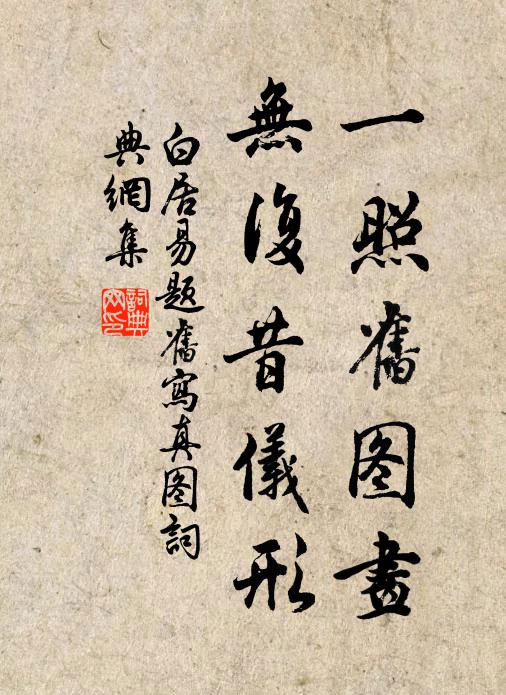 一照舊图畫
無復昔儀形
白居易題舊寫真图詞
典網集
詞典网印